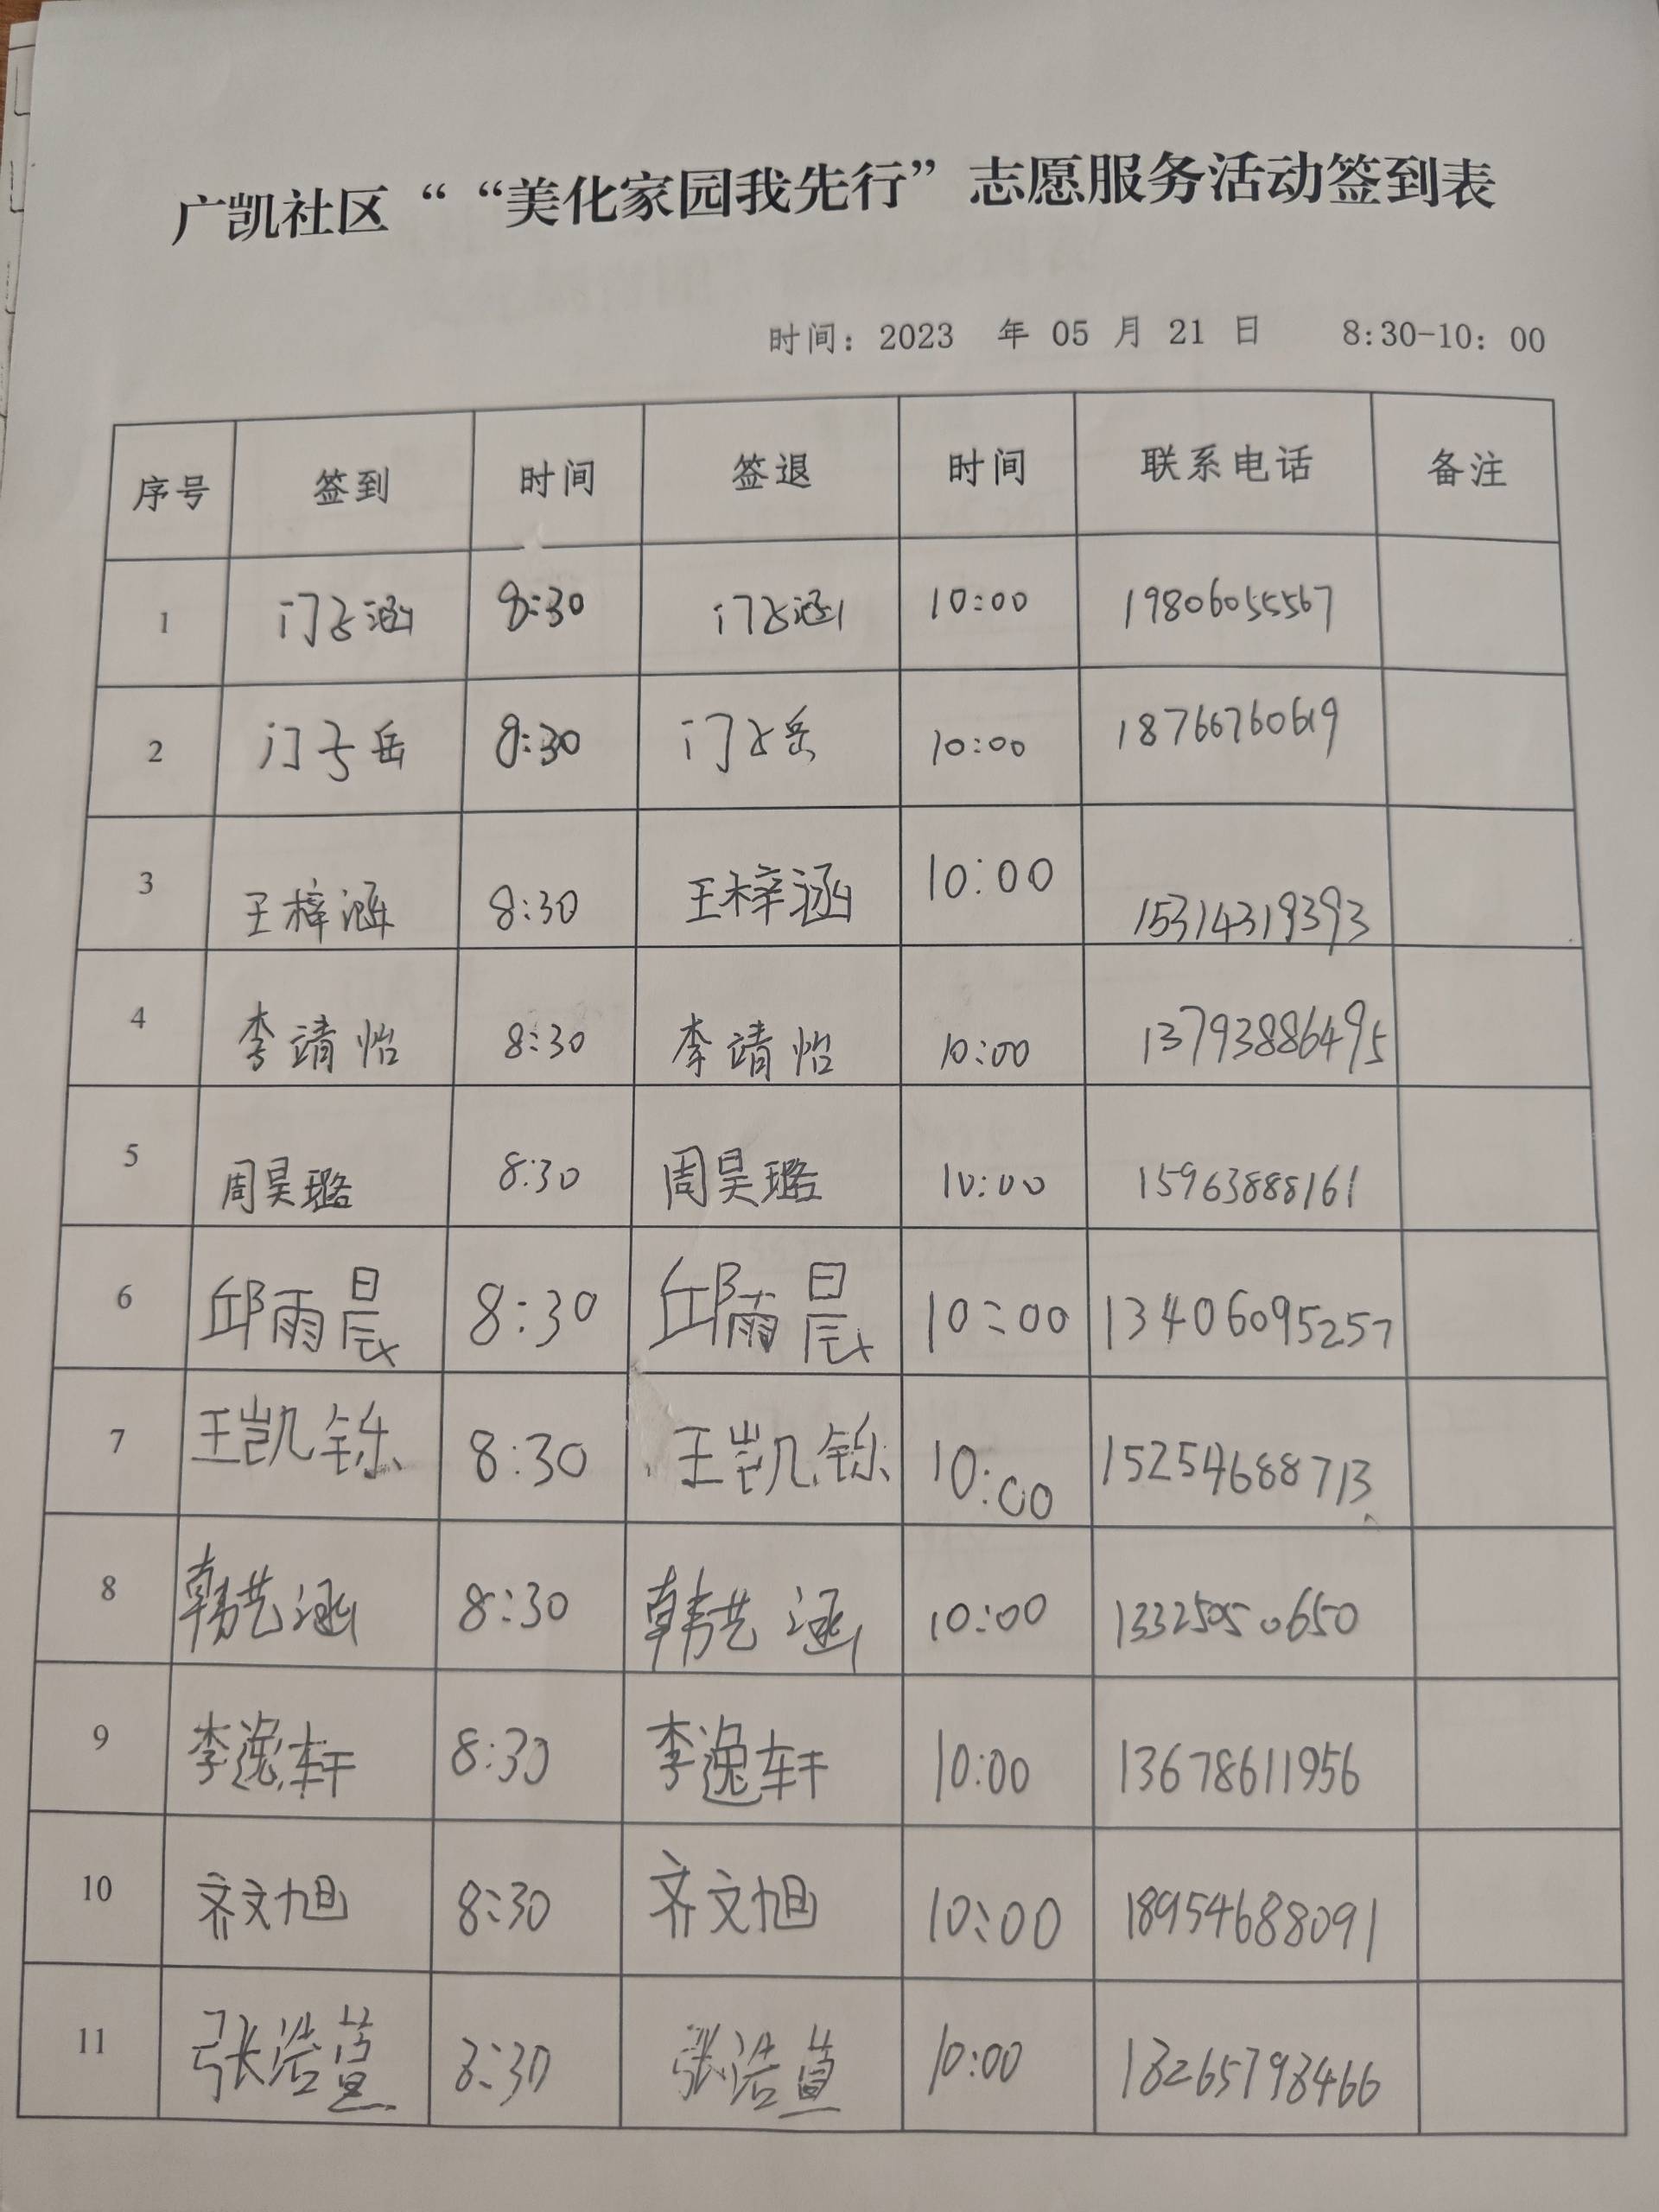 广凯社区““美化家园我先行”志愿服务活动签到表
时间：2023 年 05 月 21 日 8:30-10：00
序号 签到 时间 签退 时间 联系电话 备注
1 门子涵 8:30 门子涵 10:00 19806055567
2 门子岳 8:30 门子岳 10:00 18766760619
3 王梓涵 8:30 王梓涵 10:00 15314319393
4 李靖怡 8:30 李靖怡 10:00 13793886495
5 周昊璐 8:30 周昊璐 10:00 15963888161
6 邱雨晨 8:30 邱雨晨 10:00 13406095257
7 王凯铄 8:30 王凯铄 10:00 15254688713
8 韩艺涵 8:30 韩艺涵 10:00 13325050650
9 李逸轩 8:30 李逸轩 10:00 13678611956
10 齐文旭 8:30 齐文旭 10:00 18954688091
11 张浩萱 8:30 张浩萱 10:00 18265798466